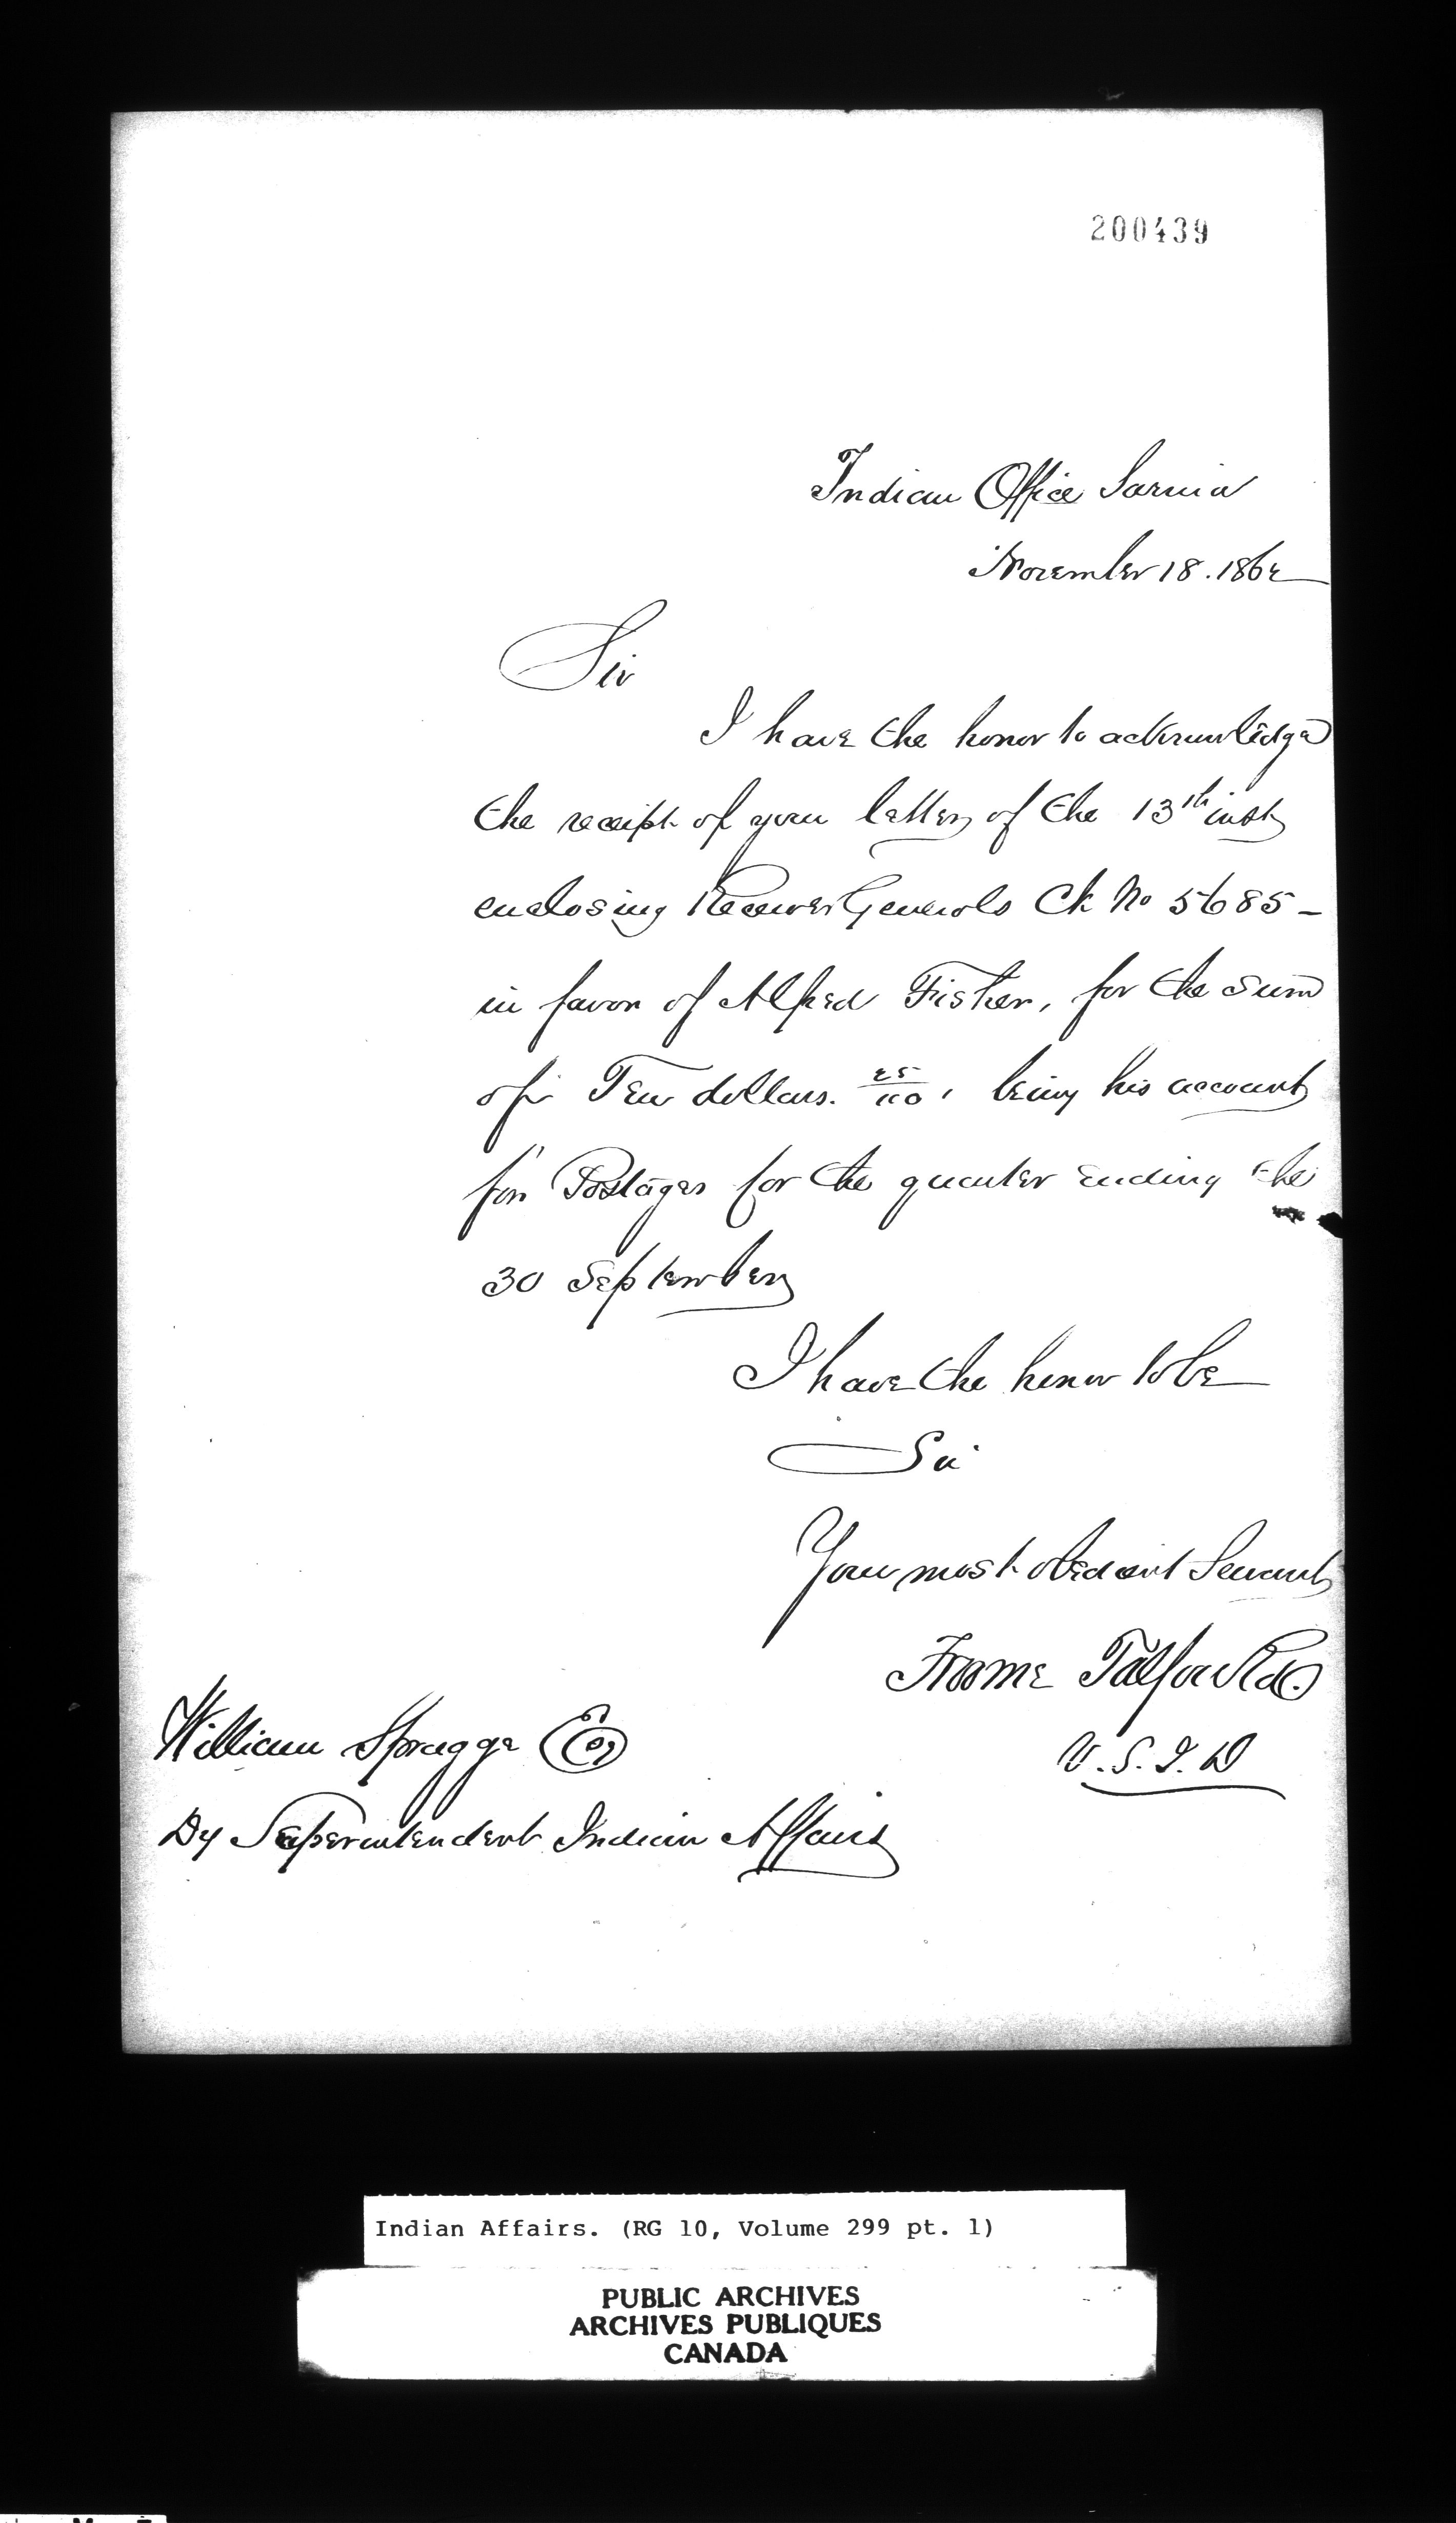 200439
Indian Office Sarnia
November 18. 1862
Sir
I have the honor to acknowledge
the receipt of your letter of the 13th inst
enclosing Receiver Generals Ck No 5685 -
in favor of Alfred Fisher, for the sum
of Ten dollars. 25/100, being his account
for Postages for the quarter ending the
30 September
I have the honor to be
Sir
Your most obedient Servant
Froome Talfourd
V. S. I. D
William Spragge Esq
Dy Superintendent Indian Affairs
Indian Affairs. (RG 10, Volume 299 pt. 1)
PUBLIC ARCHIVES
ARCHIVES PUBLIQUES
CANADA